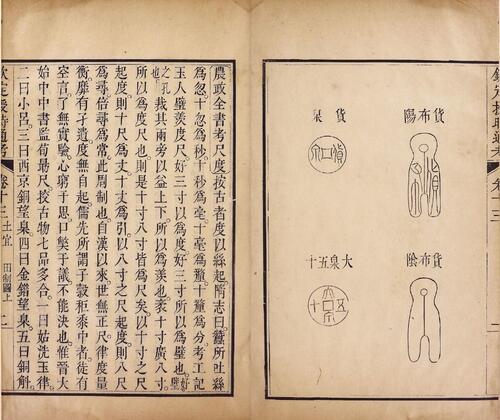 貨布陽
貨布
貨泉
貨泉
貨布陰
大泉五十
大泉五十
農政全書考尺度按古者度以絲起隋志曰蠶所吐絲
為忽十忽為秒十秒為毫十毫為釐十釐為分考工記
玉人璧羨度尺好三寸以為度好三寸所以為璧也好璧
之孔也裁其兩旁以益上下所以為羨也袤十寸廣八寸
所以為度尺也則是十寸八寸皆為尺矣以十寸之尺
起度則十尺為丈十丈為引以八寸之尺起度則八尺
為尋倍尋為常此周制也自漢以來世無正尺律度量
衡靡有孑遺度無自起儒先所謂子穀秬黍中者徒有
空言了無實驗心窮于思口獘于議不能決也惟晉大
始中中書監荀勗尺挍古物七品多合一曰姑洗玉律
二曰小呂三曰西京銅望臬四曰金錯望臬五曰銅斛
欽定授時通考 卷十三 土宜 田制圖上 二